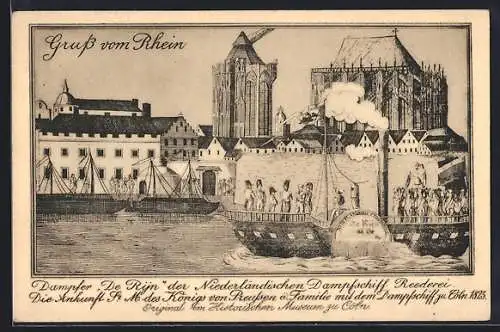 Gruß vom Rhein
De Rijn
Dampfer "De Rijn" der Niederländischen Dampfschiff Reederei
Die Ankunft Sr. M. des Königs von Preußen u. Familie mit dem Dampfschiff zu Cöln 1825.
Original im Historischen Museum zu Cöln.